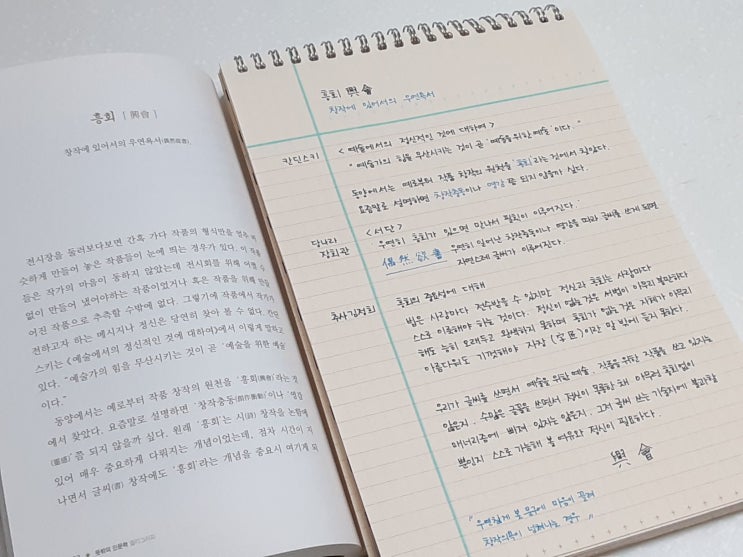 흥회 [興會]
창작에 있어서의 우연욕서(偶然欲書)
전시장을 둘러보다보면 간혹 가다 작품의 형식만을
슷하게 만들어 놓은 작품들이 눈에 띄는 경우가 있다. 이
들은 작가의 마음이 동하지 않았는데 전시회를 위해 어쩔 수
없이 만들어 냈어야하는 작품이었거나 혹은 작품을 위해
어진 작품으로 추측할 수밖에 없다. 그렇기에 작품에서 작가가
전하고자 하는 메시지나 정신은 당연히 찾아 볼 수 없다. 칸딘
스키는 《예술에서의 정신적인 것에 대하여》에서 이렇게 말하고
있다. "예술가의 힘을 무산시키는 것이 곧 '예술을 위한 예술'
이다."
동양에서는 예로부터 작품 창작의 원천을 '흥회(興會)'라는 것
에서 찾았다. 요즘말로 설명하면 '창작충동(創作衝動)'이나 '영감
(靈感)' 쯤 되지 않을까 싶다. 원래 '흥회'는 시(詩) 창작을 논함에
있어 매우 중요하게 다뤄지는 개념이었는데, 점차 시간이 지
나면서 글씨(書) 창작에도 '흥회'라는 개념을 중요시 여기게 되
흥회 興會
창작에 있어서의 우연욕서
칸딘스키
< 예술에서의 정신적인 것에 대하여 >
" 예술가의 힘을 무산시키는 것이 곧 '예술을 위한 예술' 이다."
동양에서는 예로부터 작품 창작의 원천을 '흥회'라는 것에서 찾았다.
요즘말로 설명하면 창작충동이나 영감 쯤 되지 않을까 싶다.
당나라
장회관
< 서단 >
'우연히 흥회가 있으면 만나서 필획이 이루어진다.'
偶然欲書
우연히 일어난 창작충동이나 영감을 따라 글씨를 쓰게 되면
자연스레 글씨가 이루어진다.
추사김정희
흥회의 중요성에 대해
법은 사람마다 전수받을 수 있지만 정신과 흥회는 사람마다
스스로 이룩해야 하는 것이다. 정신이 없는 것은 서법이 아무리 볼만하다
해도 능히 오래두고 완색하지 못하며 흥회가 없는 것은 자체가 아무리
아름다워도 기껏해야 자장(字匠)이란 말 밖에 듣지 못한다.
우리가 글씨를 쓰면서 예술을 위한 예술, 작품을 위한 작품을 쓰고 있지는
않은지. 수많은 글을 쓰면서 정신이 몽롱한 채 아무런 흥회없이
매너리즘에 빠져 있지는 않은지. 그저 글씨 쓰는 기술자에 불과할
뿐인지 스스로 가늠해 볼 여유와 정신이 필요하다.
興會
" 우연찮게 본 문구에 마음이 끌려
창작의욕이 넘쳐나는 경우 "